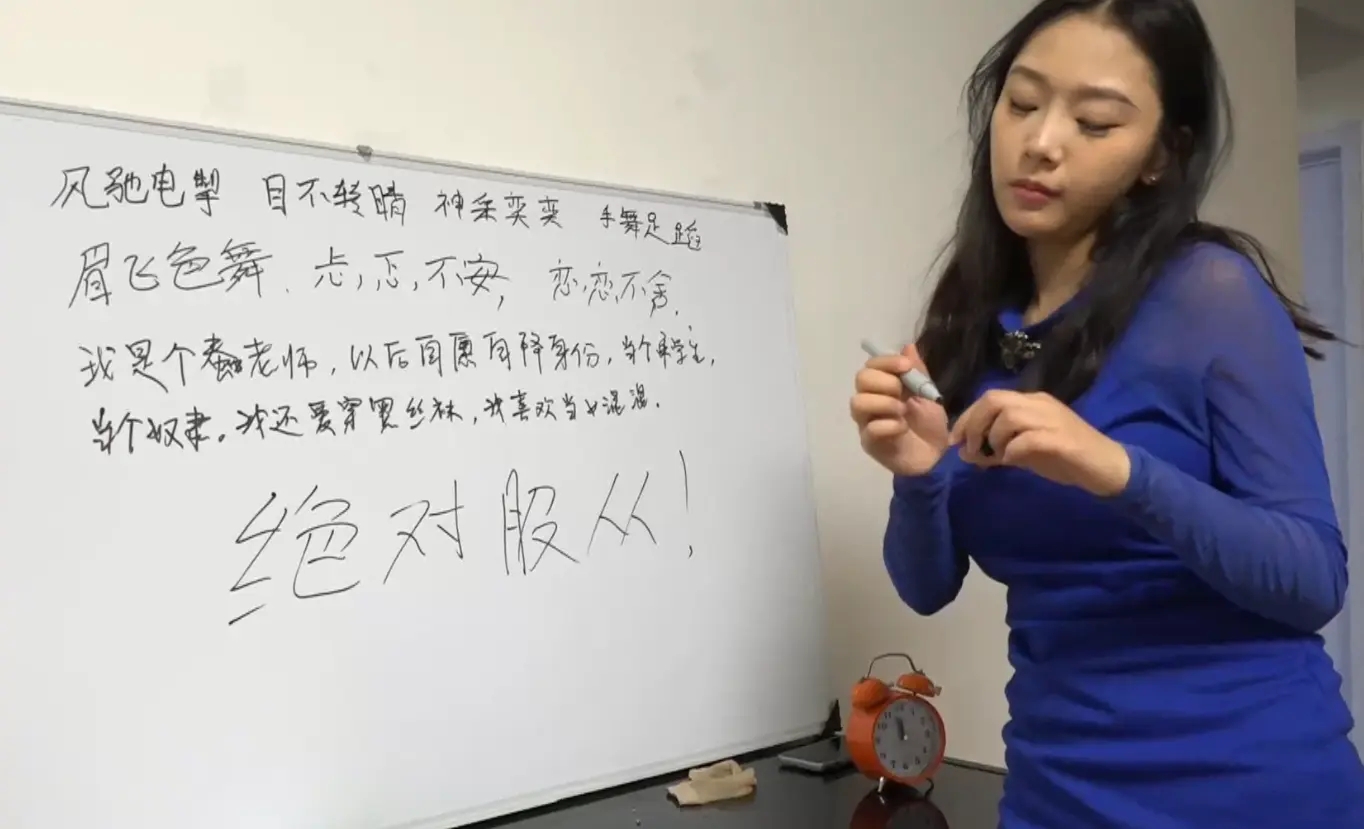 风驰电掣 目不转睛 神采奕奕 手舞足蹈
眉飞色舞. 忐,忑,不安, 恋,恋,不舍.
我是个蠢老师,以后自愿自降身份,当个学生,
当个奴隶。我还爱穿黑丝袜,我喜欢当女混混.
绝对服从!